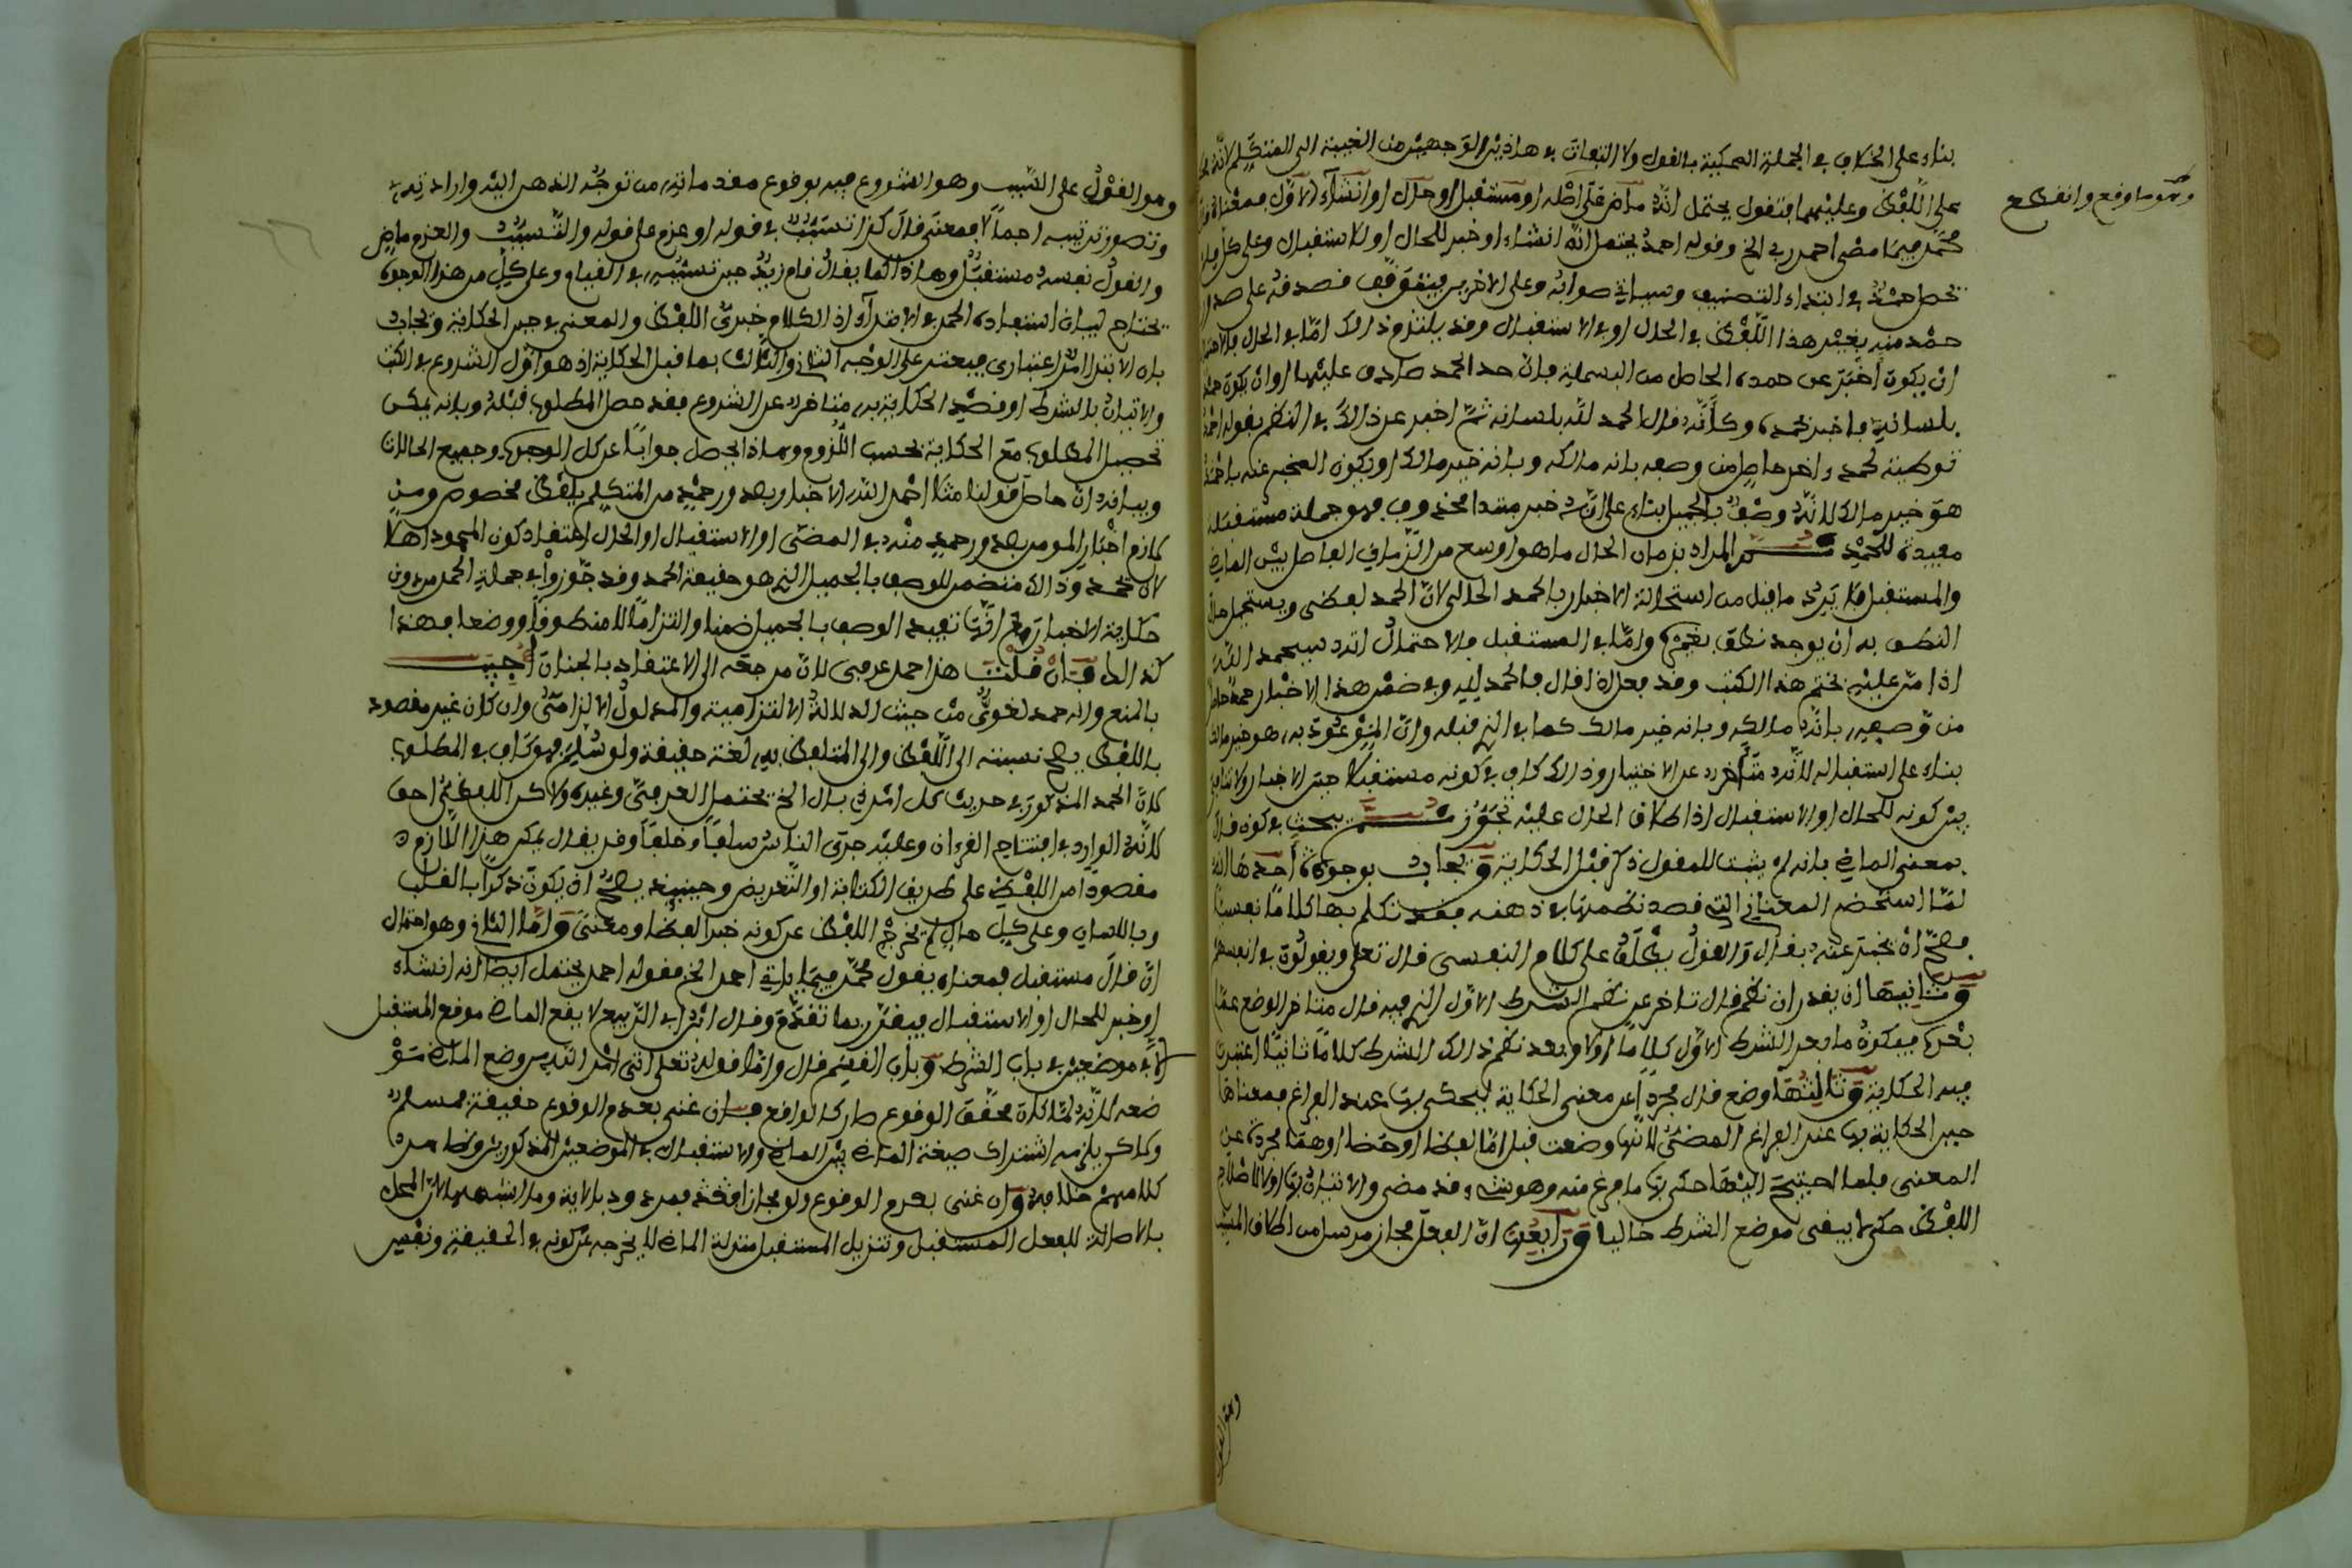 بناء على الخلاف في الجملة المحكية بالقول ولا التفات في هاذين الوجهين من الغيبة الى المتكلم لانه
على اللفظ وعليهما فتقول يحتمل انه ماض على اصله او مستقبل او حال او انشاء الاول فمعناه
وهو ما وقع وانقطع
محمد فيما مضى احمد ربي الخ وقوله احمد يحتمل انه انشاء او خبر للحال او الاستقبال وعلى كل
حمد في ابتداء التصنيف وسياتي صوابه وعلى الاخرين فيتوقف صدقه على صدور
حمد منه بغير هذا اللفظ في الحال او في الاستقبال وقد يلتزم ذالك اما في الحال
ان يكون اخبر عن حمده الحاصل من البسملة فان حد الحمد صادق عليها او ان يكون حمد
بلسانه فاخبر بحمده وكانه قال الحمد لله بلسانه ثم اخبر عن ذالك في النظم بقوله احمد
توطية لحمد ءاخر حاصل من وصفه بانه مالكه وبانه خير مالك او يكون المخبر عنه باحمد
هو خير مالك لانه وصف بالجميل بناء على انه خبر مبتدا محذوف فهو جملة مستقلة
مفيدة للحمد المراد بزمان الحال ما هو اوسع من الزمان الفاصل بين الماضي
والمستقبل فلا يرد ما قيل من استحالة الاخبار بالحمد الحالي لان الحمد لفظي ويستحيل حال
النطق به ان يوجد نطق بغيره واما في المستقبل فلاحتمال انه سيحمد الله
اذا من عليه بختم هذا الكتب وقد فعل اذ قال فالحمد لله وفي ضمن هذا الاخبار حمد حاصل
من وصفه بانه مالكه وبانه خير مالك كما في الذي قبله وان الموعود به هو خير مالك
بناء على استقباله لانه متاخر عن الاخبار وذالك كاف في كونه مستقبلا حين الاخبار ولا تنافي
بين كونه للحال او الاستقبال اذ اطلاق الحال عليه تجوز يبحث في كون قال
بمعنى الماضي بانه لم يثبت للمقول ذكر قبل الحكاية ويجاب بوجوه احدها انه
لما استحضر المعاني التي قصد نظمها في ذهنه فقد تكلم بها كلاما نفسيا
فصح ان يخبر عنه بقال والقول يطلق على كلام النفسي قال تعلى ويقولون في انفسهم
وثانيها ان يقدر ان نظم قال تاخر عن نظم الشطر الاول الذي فيه قال متاخر الوضع عما
بعده فيكون ما بعد الشطر الاول كلاما اولا وبعد نظم ذالك الشطر كلاما ثانيا اعتبرت
فيه الحكاية وثالثها وضع قال مجردا عن معنى الحكاية ليحكى بها عند الفراغ فمعناها
حين الحكاية بها عند الفراغ المضي لانها وضعت قبل اما لفظا او خطا او هما مجردة عن
المعنى فلما احتيج اليها حكى بها ما فرغ منه وهو شيء قد مضى والاتيان بها اولا لاصلاح
اللفظ حتى لا يبقى موضع الشطر خاليا ورابعها ان الفعل مجاز مرسل من اطلاق المسبب
وهو القول
وهو القول على السبب وهو الشروع فيه بوقوع مقدماته من توجه الذهن اليه وارادته
وتصور ترتيبه اجمالا فمعنى قال كذا تسبب في قوله او عزم على قوله والتسبب والعزم ماض
والقول نفسه مستقبل وهاذا كما يقال قام زيد حين تسببه في القيام وعلى كل من هذه الوجوه
يحتاج لبيان استفادة الحمد في الابتداء اذ الكلام خبري اللفظ والمعنى في حين الحكاية ويجاب
بان الابتداء امر اعتباري فيعتد على الوجه الثاني والثالث بما قبل الحكاية اذ هو اول الشروع في الكتب
والاتيان بالشطر او قصد الحكاية به متاخر عن الشروع فقد حصل المطلوب قبله وبانه يمكن
تحصيل المطلوب مع الحكاية بحسب اللزوم وهاذا يحصل جوابا عن كل الوجوه وجميع الحالات
وبيانه ان حاصل قولنا مثلا احمد الله الاخبار بصدور حمد من المتكلم بلفظ مخصوص ومن
لازم اخبار المومن بصدور حمد منه في المضي او الاستقبال او الحال اعتقاد كون المحمود اهلا
لان يحمد وذالك متضمن للوصف بالجميل الذي هو حقيقة الحمد وقد جوزوا في جملة الحمد من دون
حكاية الاخبار وهي انها تفيد الوصف بالجميل ضمنا والتزاما لا منطوقا ووضعا فهذا
كذالك فان قلت هذا حمد عرفي لان مرجعه الى الاعتقاد بالجنان اجيب
بالمنع وانه حمد لغوي من حيث الدلالة الالتزامية والمدلول الالتزامي وان كان غير مقصود
باللفظ يصح نسبته الى اللفظ والى المتلفظ به لغة حقيقة ولو سلم فهو كاف في المطلوب
لان الحمد المذكور في حديث كل امر ذي بال الخ يحتمل العرفي وغيره ولاكن اللفظي احق
لانه الوارد في افتتاح القرءان وعليه جرى الناس سلفا وخلفا وقد يقال يمكن هذا اللازم
مقصودا من اللفظ على طريق الكناية او التعريض وحينئذ يصح ان يكون ذكرا بالقلب
وباللسان وعلى كل حال لم يخرج اللفظ عن كونه خبرا لفظا ومعنى واما الثاني وهو احتمال
ان قال مستقبل فمعناه يقول محمد فيما ياتي احمد الخ فقوله احمد يحتمل ايضا انه انشاء
او خبر للحال او الاستقبال فيقرر بما تقدم وقال ابن ابي الربيع لا يقع الماضي موقع المستقبل
الا في موضعين في باب الشرط وباب القسم قال واما قوله تعلى اتى امر الله فليس وضع الماضي
ضعه لانه لما كان محقق الوقوع صار كالواقع فان عنى بعدم الوقوع حقيقة فمسلم
ولاكن يلزمه اشتراك صيغة الماضي بين الماضي والاستقبال في الموضعين المذكورين وظاهر
كلامهم خلافه وان عنى بعدم الوقوع ولو مجازا فمردود بالاية وما اشبهها لان المحل
بالاصالة للفعل المستقبل وتنزيل المستقبل منزلة الماضي لا يخرجه عن كونه في الحقيقة ونفس